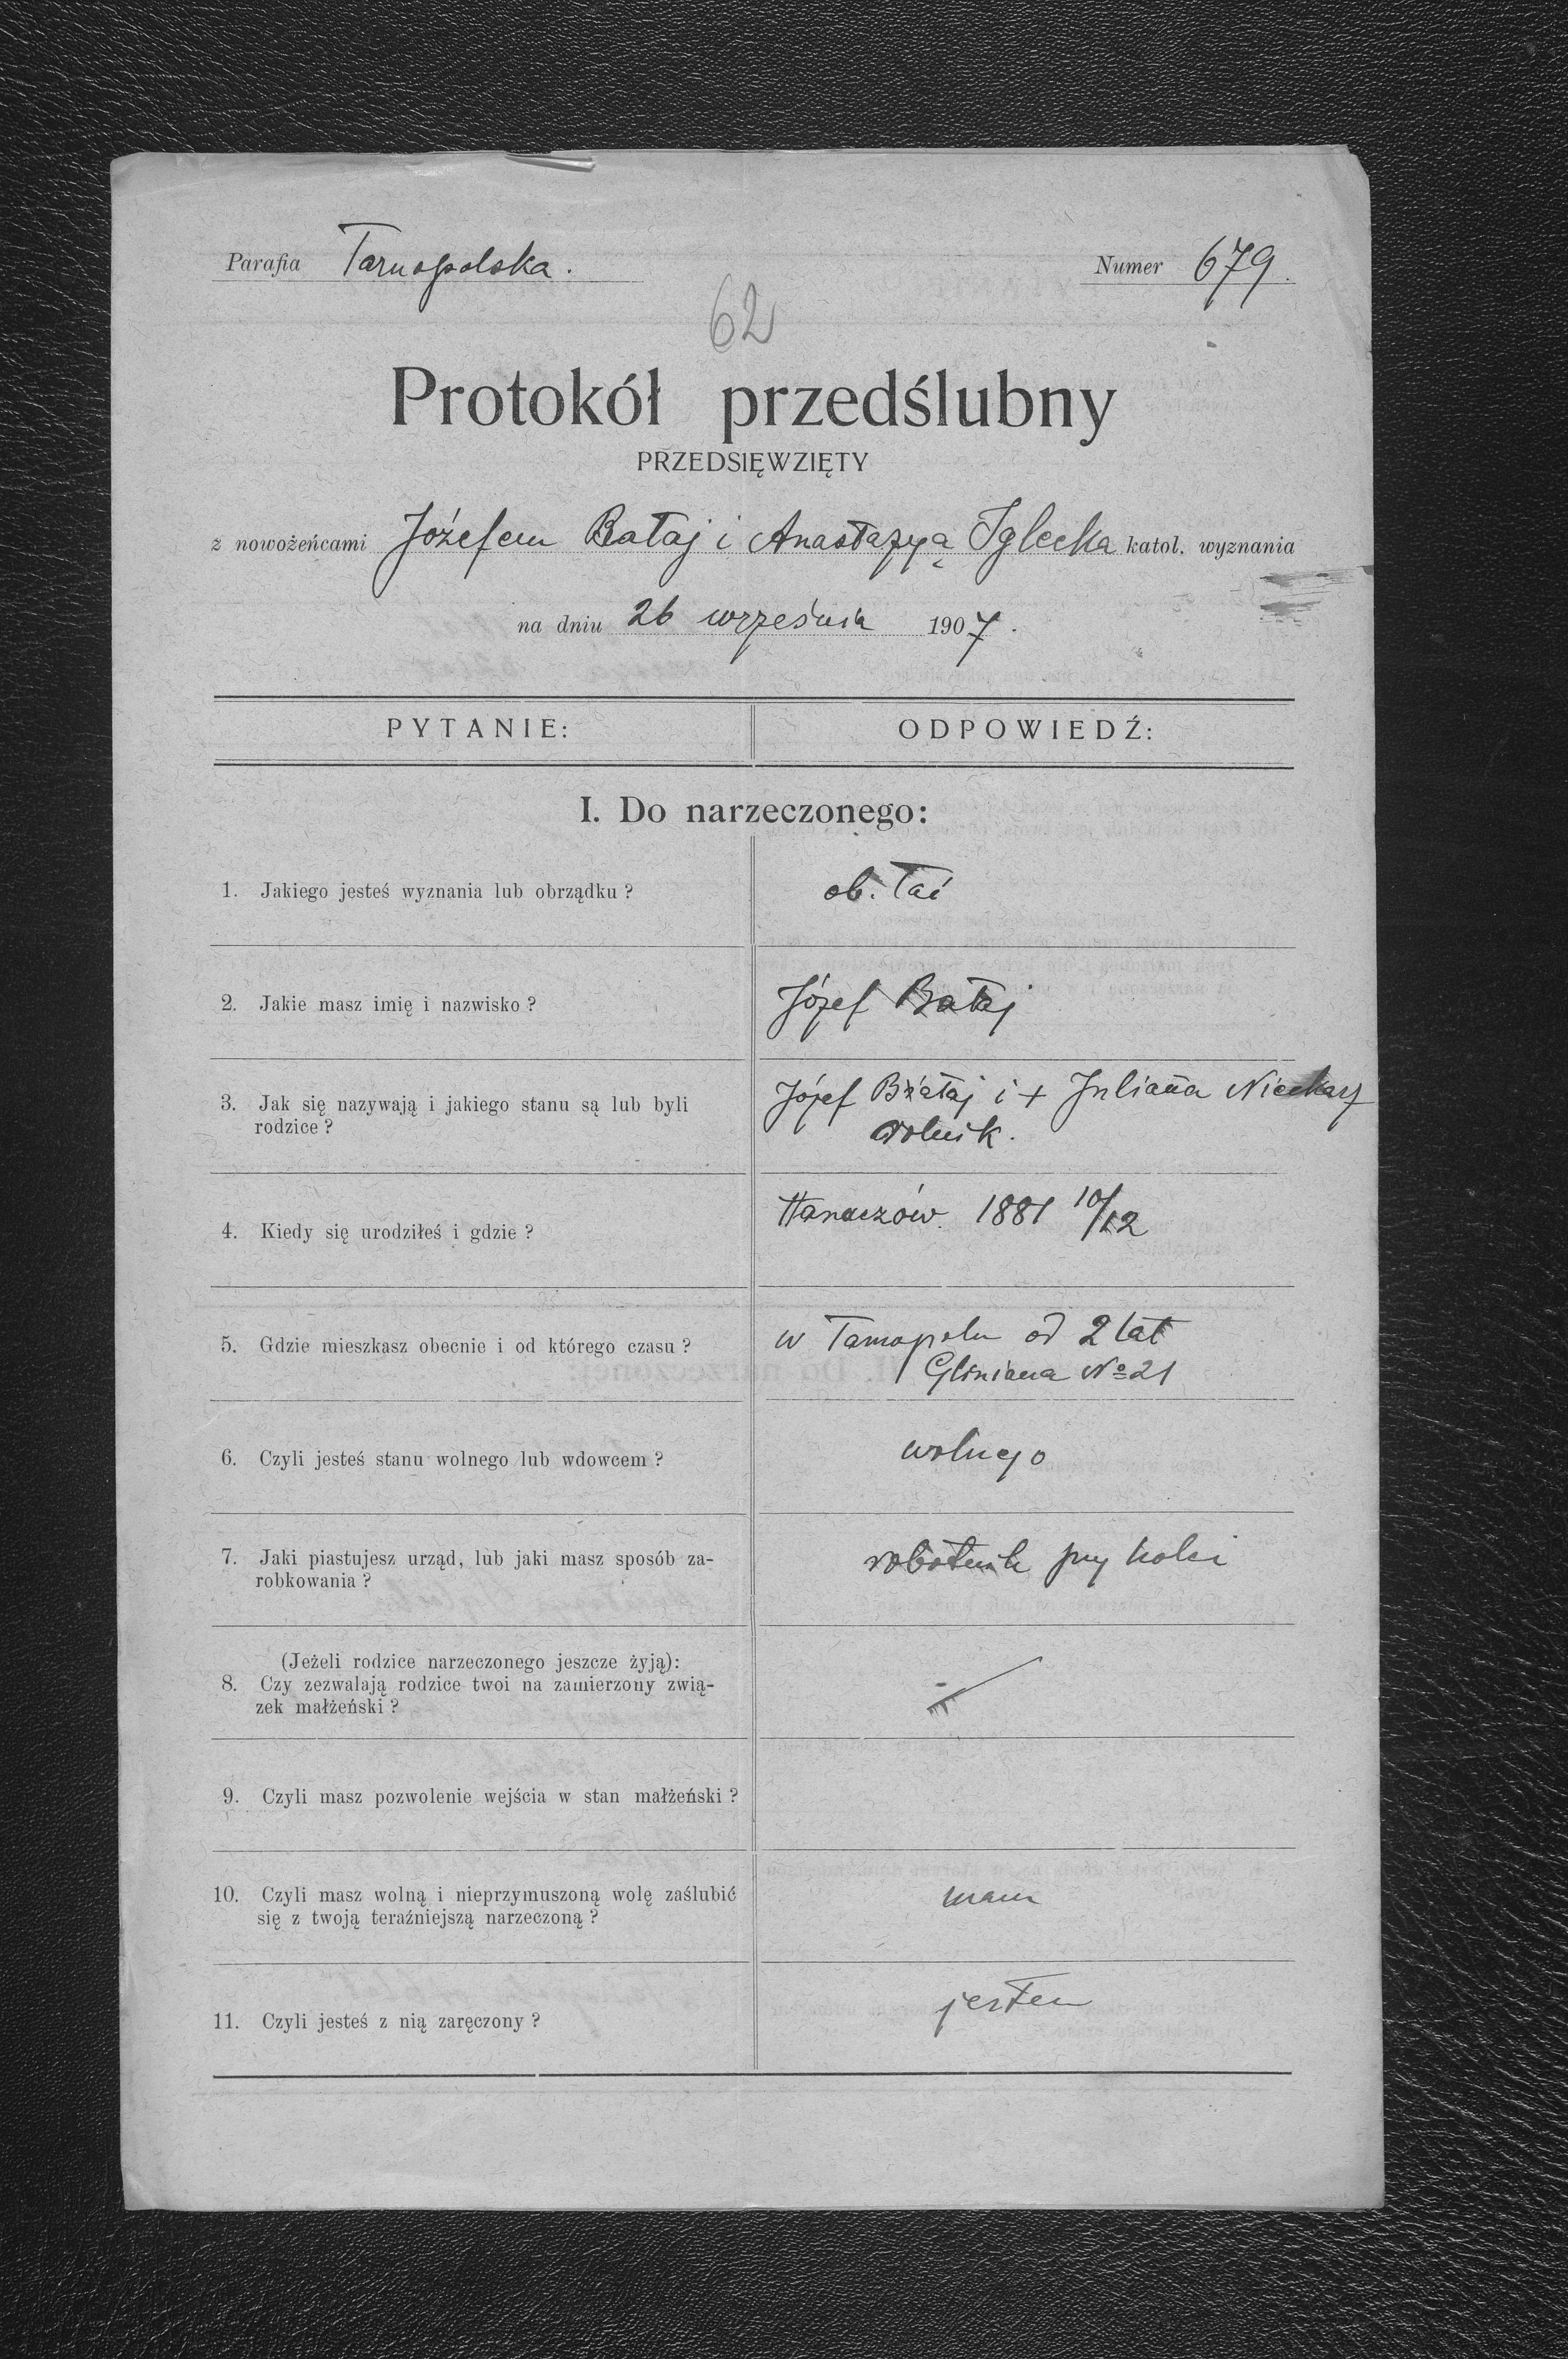 Parafia Tarnopolska. Numer 679.
62
Protokół przedślubny
PRZEDSIĘWZIĘTY
z nowożeńcami Józefem Bałaj i Anastazyą Iglecka katol. wyznania
na dniu 26 września 1907.
PYTANIE: ODPOWIEDŹ:
I. Do narzeczonego:
1. Jakiego jesteś wyznania lub obrządku? ob. łać
2. Jakie masz imię i nazwisko? Józef Bałaj
3. Jak się nazywają i jakiego stanu są lub byli Józef Bałaj i + Juliana
rodzice? rolnik.
4. Kiedy się urodziłeś i gdzie? Hanaczów. 1881 10/12
5. Gdzie mieszkasz obecnie i od którego czasu? w Tarnopolu od 2 lat
Gliniana No 21
6. Czyli jesteś stanu wolnego lub wdowcem? wolnego
7. Jaki piastujesz urząd, lub jaki masz sposób za- robotnik przy kolei
robkowania?
(Jeżeli rodzice narzeczonego jeszcze żyją):
8. Czy zezwalają rodzice twoi na zamierzony zwią-
zek małżeński?
9. Czyli masz pozwolenie wejścia w stan małżeński?
10. Czyli masz wolną i nieprzymuszoną wolę zaślubić mam
się z twoją teraźniejszą narzeczoną?
11. Czyli jesteś z nią zaręczony? jestem